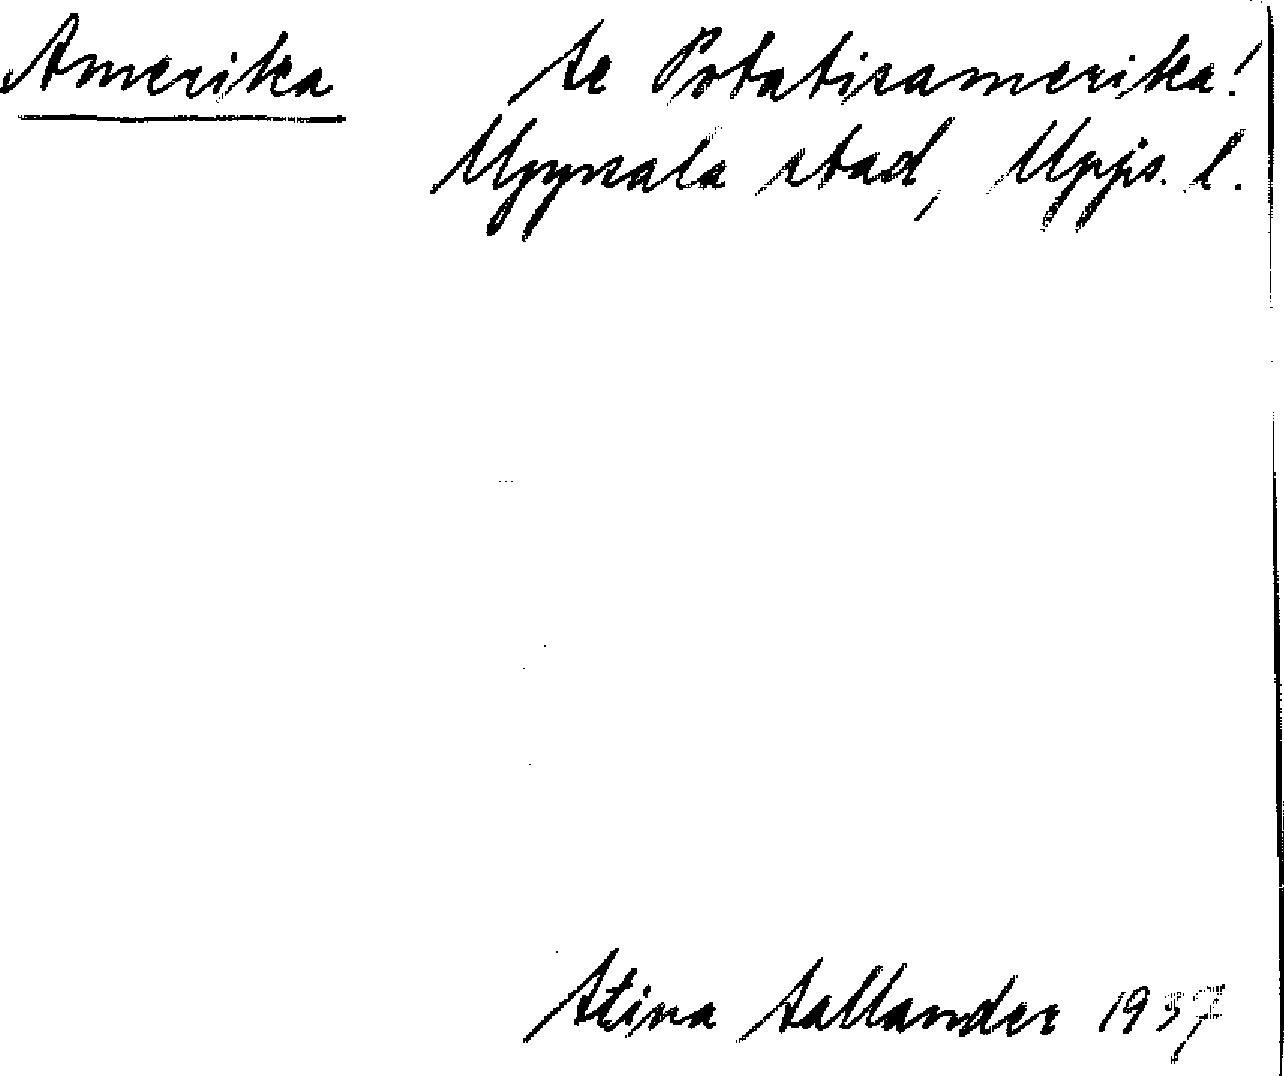 Amerika
Se Potatisamerika!
Uppsala stad, Upps. l.
Stina Sallander 1937